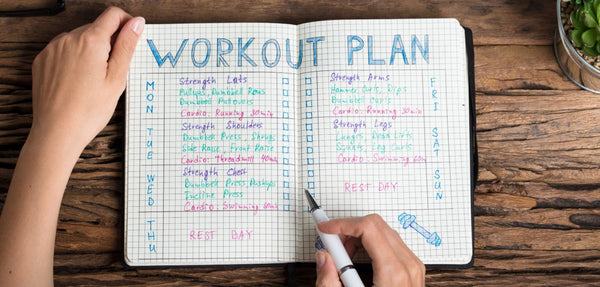 WORKOUT PLAN
MON
Strength Lats
Pullups, Dumbbell Rows
Dumbbell Pullovers
Cardio: Running 30min
TUE
Strength Shoulders
Dumbbell Press, Shrugs
Side Raise, Front Raise
Cardio: Threadmill 40min
WED
Strength Chest
Dumbbell Press Pushups
Incline Press
Cardio: Swimming 60min
THU
REST DAY
FRI
Strength Arms
Hammer Curls, Dips
Dumbell Curls
Cardio: Running 30min
SAT
Strength Legs
Lunges, Dead Lifts
Squats, Leg Curls
Cardio: Swimming 60m
SUN
REST DAY